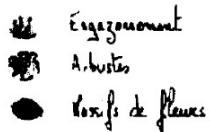 Engazonnement
Arbustes
Massifs de fleurs